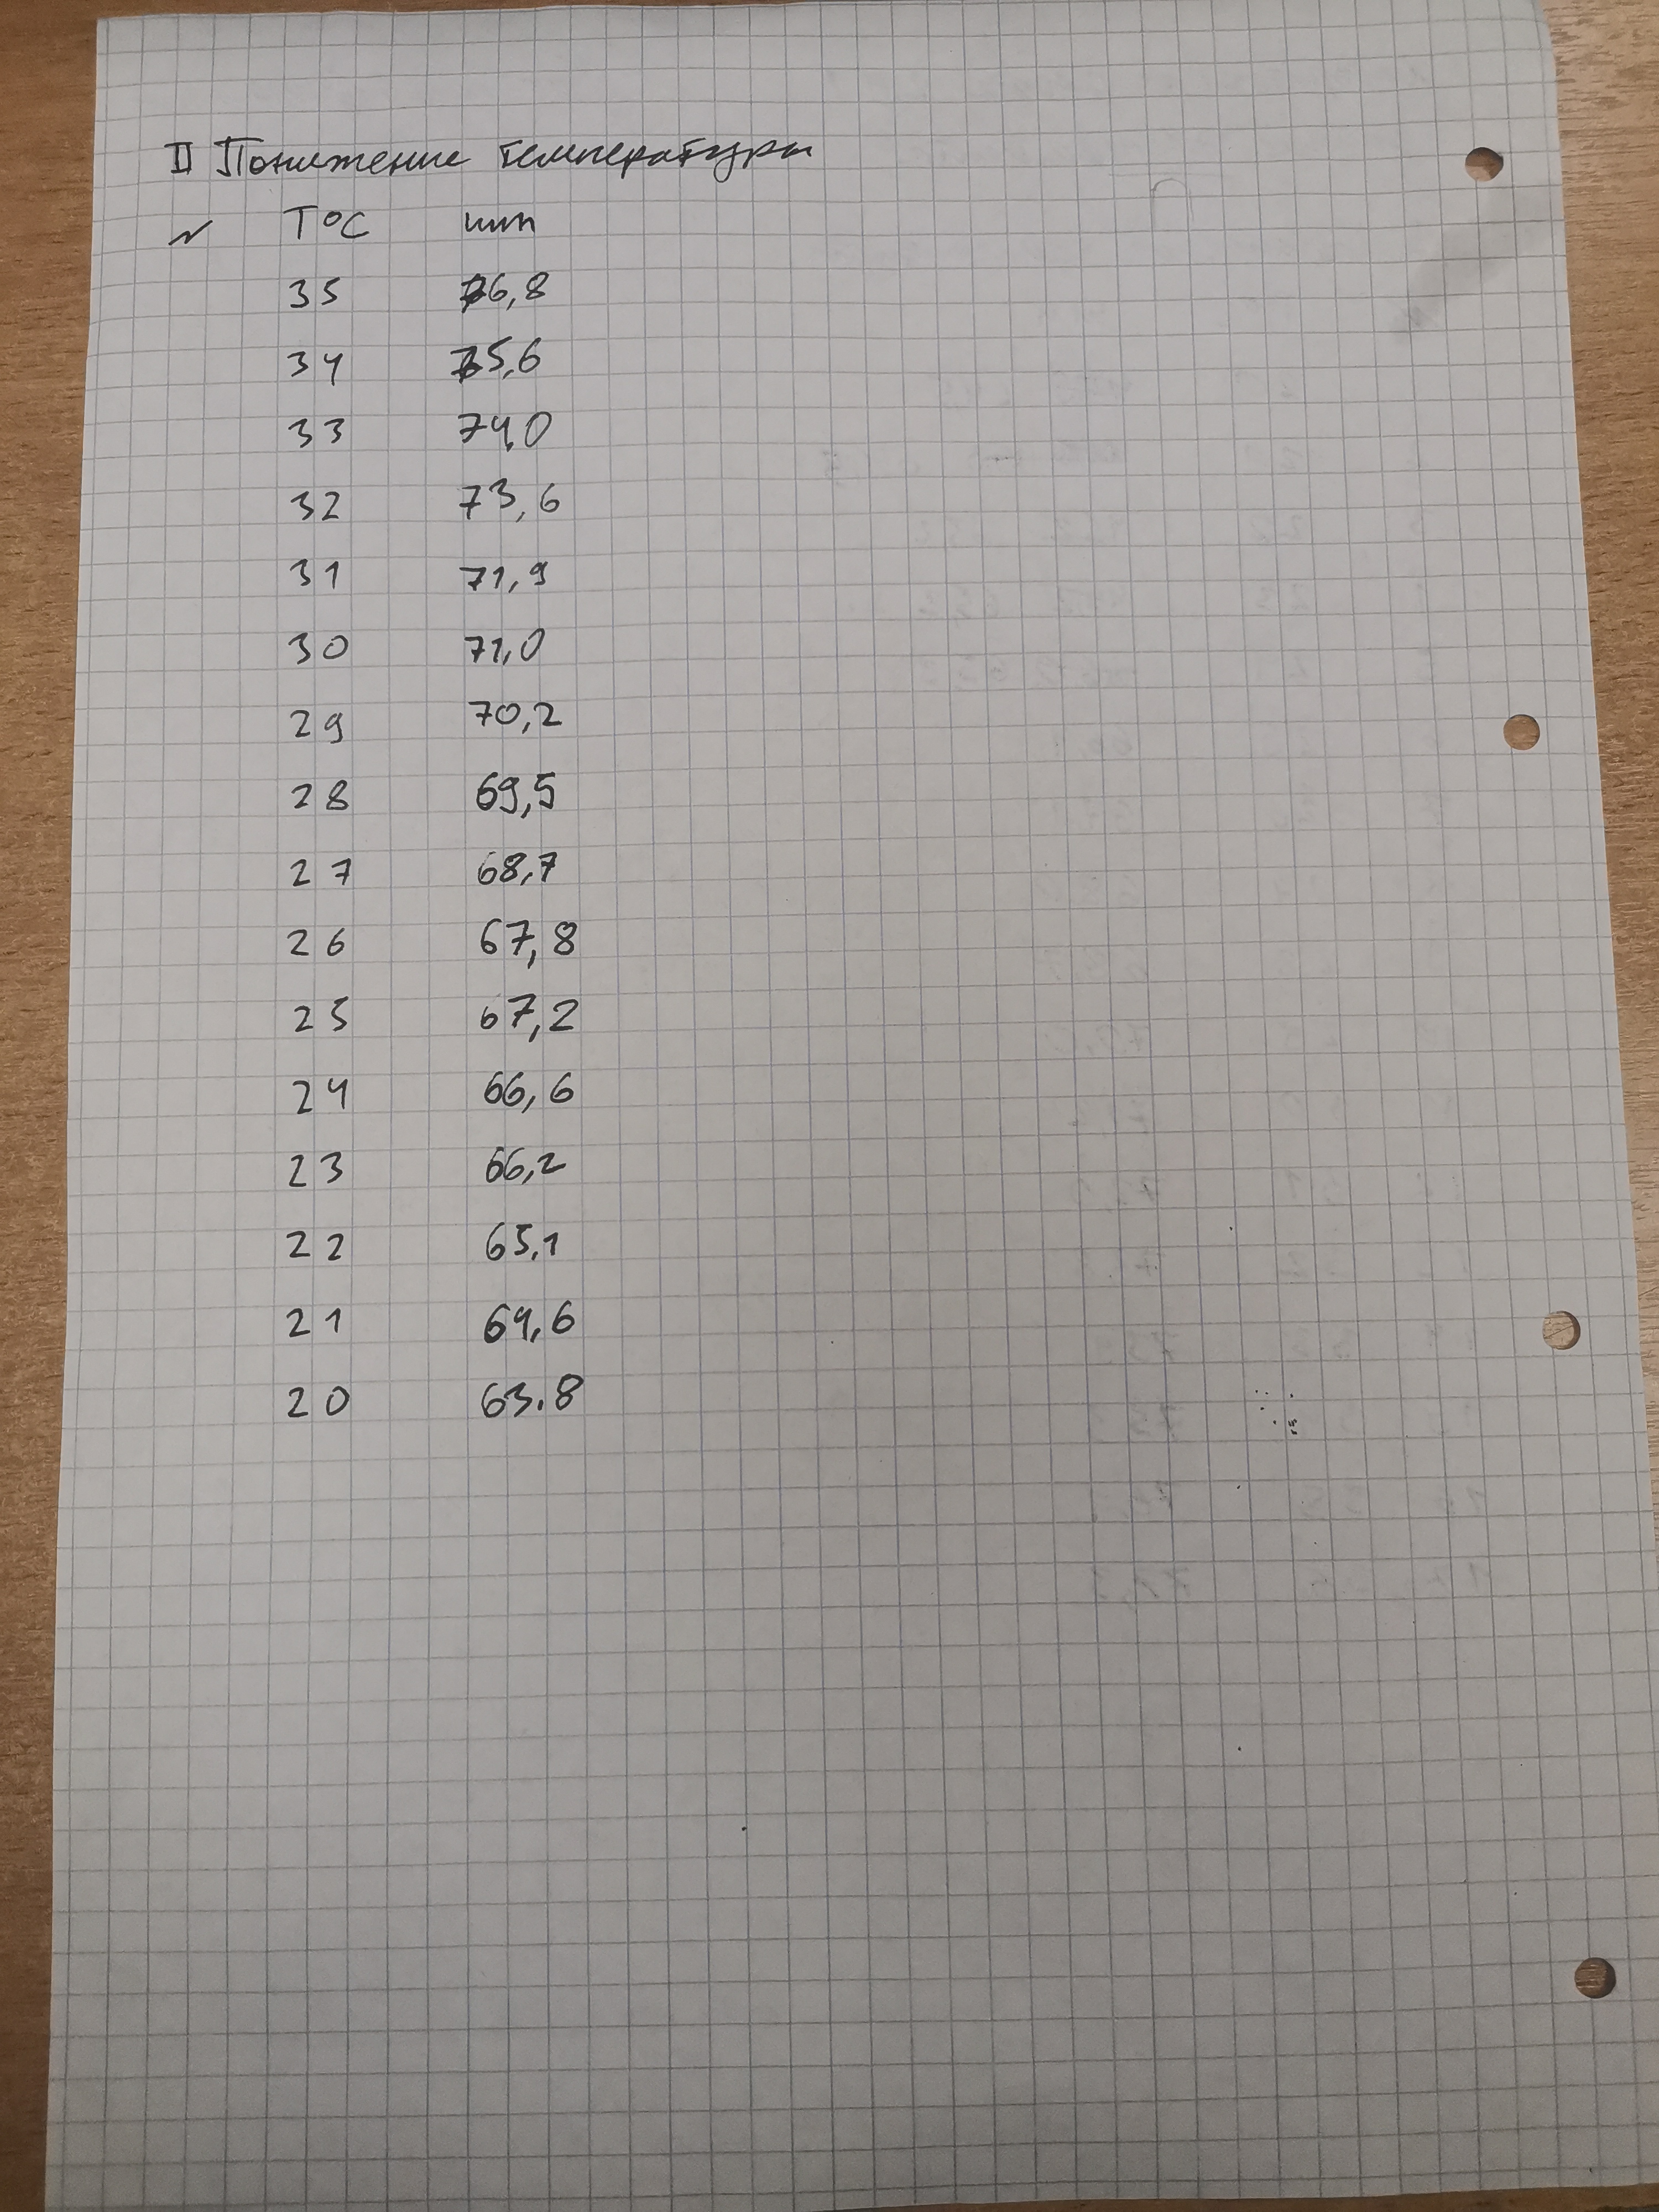 II Понижение температуры
N T°C mm
35 76,8
34 75,6
33 74,0
32 73,6
31 71,9
30 71,0
29 70,2
28 69,5
27 68,7
26 67,8
25 67,2
24 66,6
23 66,2
22 65,1
21 64,6
20 63.8